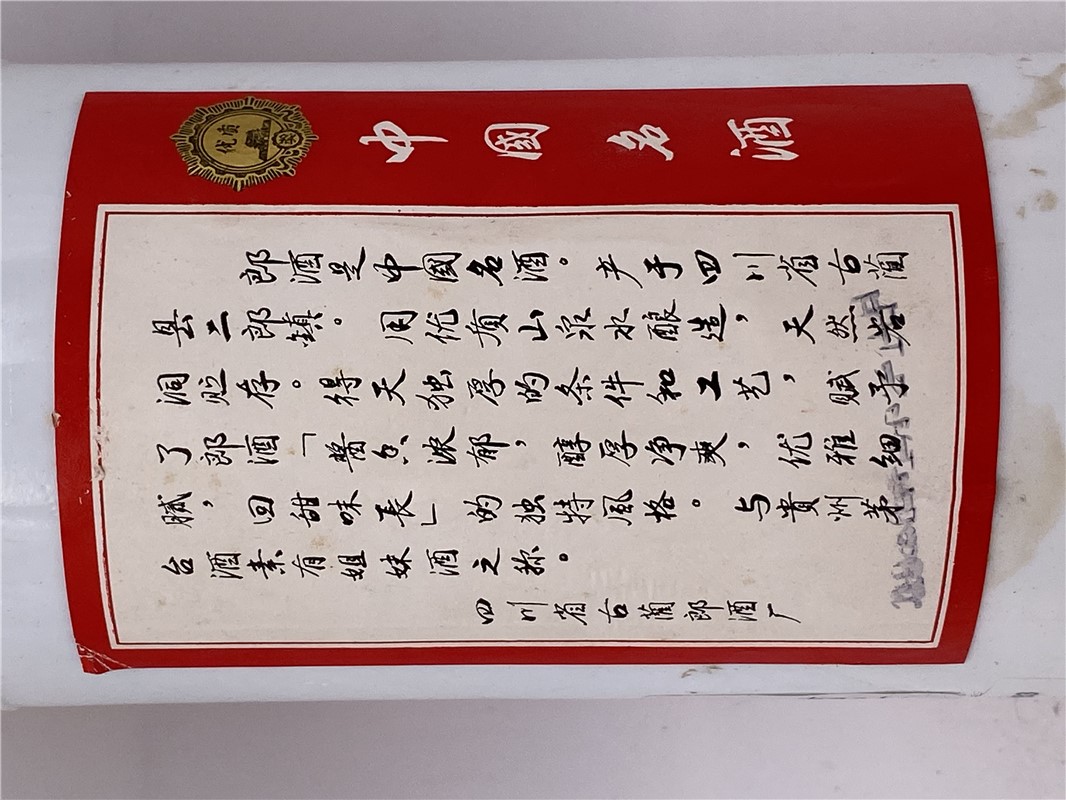 中國名酒
优质
奖
郎酒是中國名酒。产于四川省古蔺
县二郎镇。用优质山泉水酿造，天然岩
洞贮存。得天独厚的条件和工艺，赋予
了郎酒「酱香浓郁，醇厚净爽，优雅细
腻，回甜味長」的独特風格。与贵州茅
台酒素有姐妹酒之称。
四川省古蔺郎酒厂